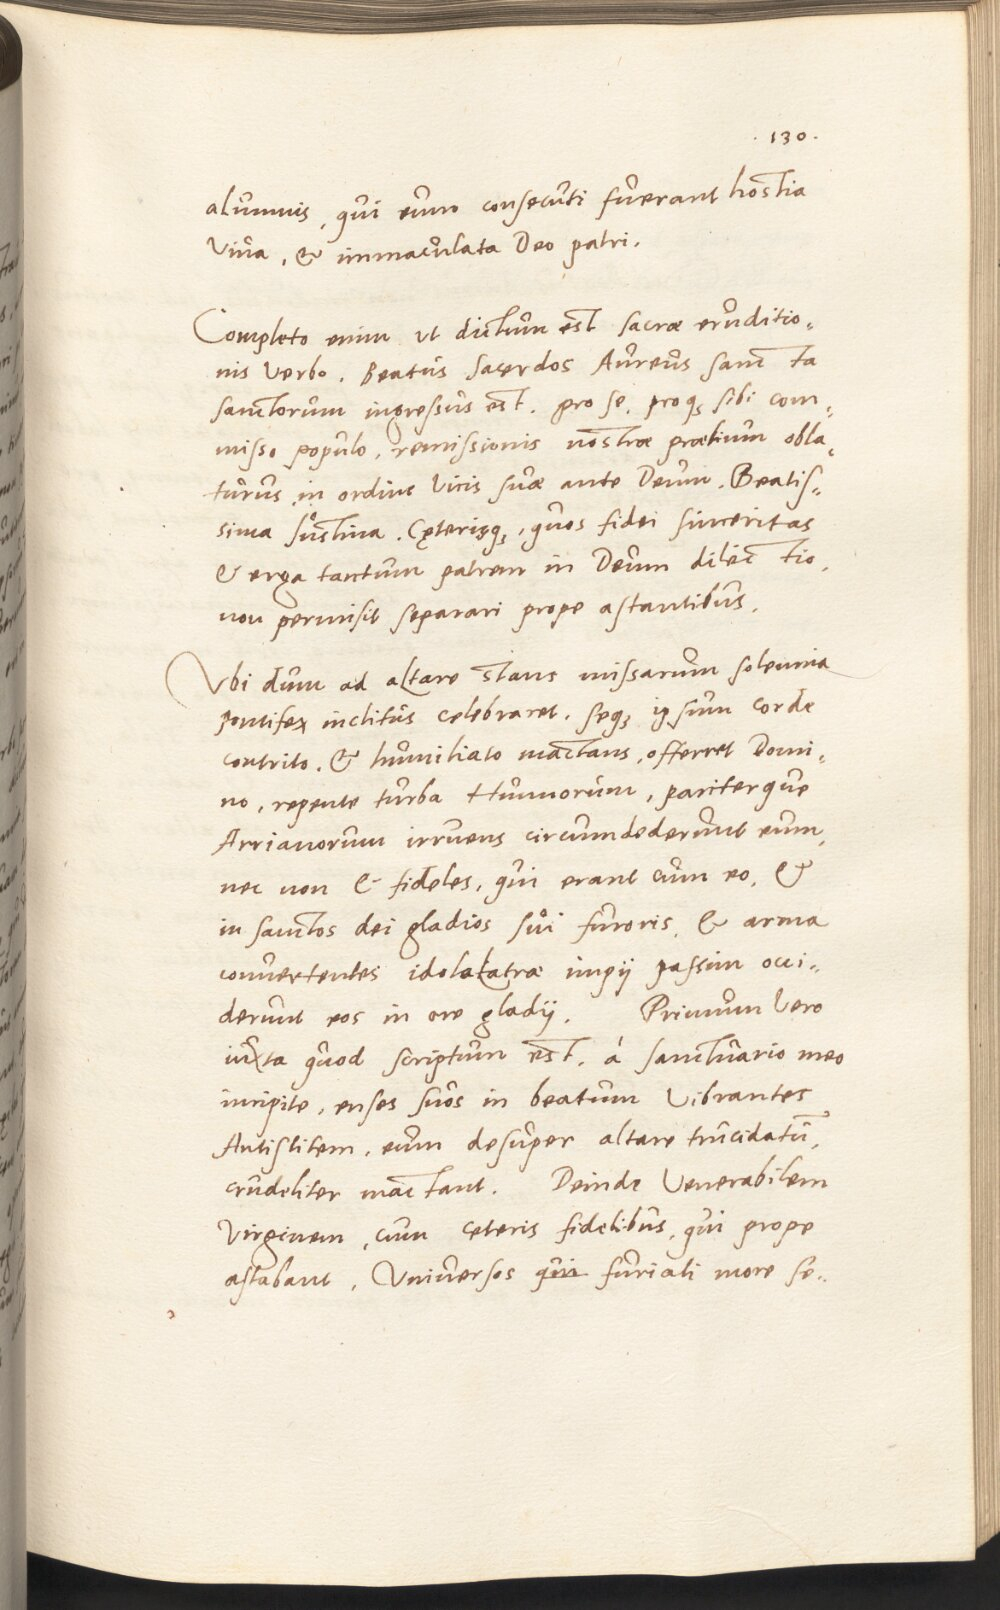 . 130 .
alumnis, qui eum consecuti fuerant hostia
viva, & immaculata Deo patri.
Completo enim ut dictum est sacræ eruditio=
nis verbo. Beatus sacerdos Aureus sancta
sanctorum ingressus est. pro se, proq; sibi com=
misso populo, remissionis nostræ prætium obla=
turus, in ordine vicis suæ ante Deum. Beatis=
sima Justina. Cęterisq;, quos fidei sinceritas
& erga tantum patrem in Deum dilectio,
non permisit separari prope astantibus.
Ubi dum ad altare stans missarum solennia
pontifex inclitus celebraret. seq; ipsum corde
contrito. & humiliato mactans, offerret Domi=
no, repente turba Hunnorum, pariterque
Arrianorum irruens circumdederunt eum,
nec non & fideles, qui erant cum eo, &
in sanctos dei gladios sui furoris, & arma
convertentes idolalatræ impij passim occi=
derunt eos in ore gladij. Primum vero
iuxta quod scriptum est. á sanctuario meo
incipite, enses suos in beatum vibrantes
Antistitem, eum desuper altare trucidatū,
crudeliter mactant. Deinde venerabilem
virginem, cum ceteris fidelibus, qui prope
astabant, Universos qui furiali more se=